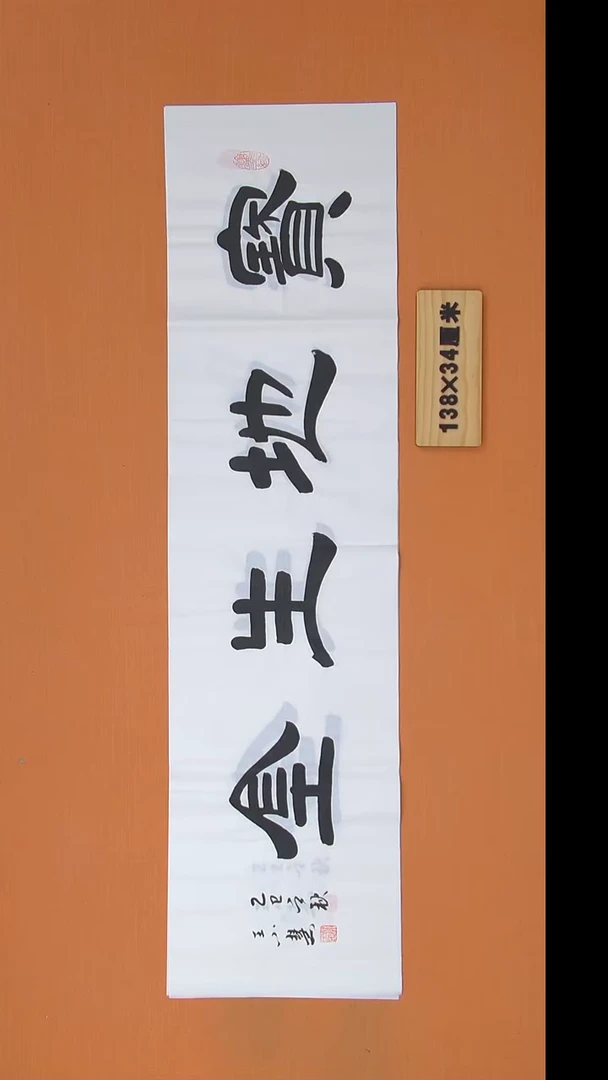 寶地生金
乙巳之秋
王小慧
138×34厘米